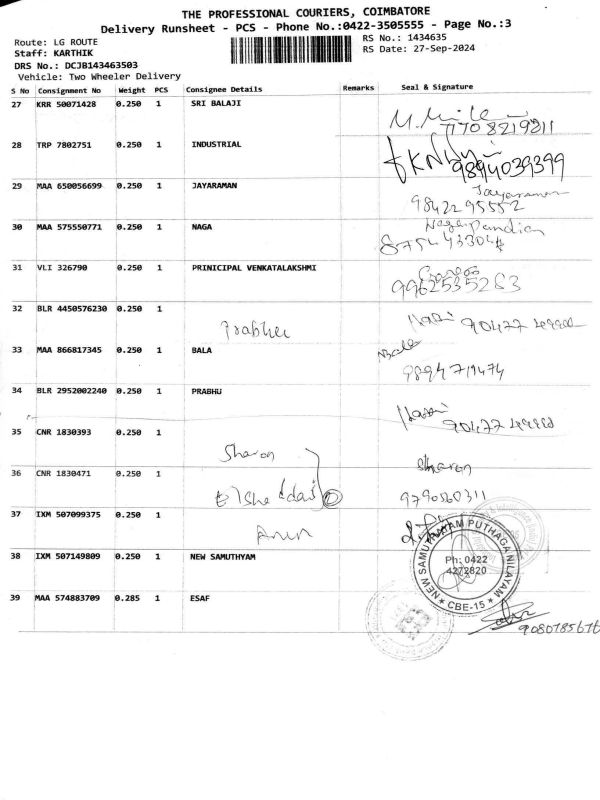 THE PROFESSIONAL COURIERS, COIMBATORE
Delivery Runsheet - PCS - Phone No.:0422-3505555 - Page No.:3
Route: LG ROUTE
RS No.: 1434635
Staff: KARTHIK
RS Date: 27-Sep-2024
DRS No.: DCJB143463503
Vehicle: Two Wheeler Delivery
S No Consignment No Weight PCS Consignee Details Remarks Seal & Signature
27 KRR 50071428 0.250 1 SRI BALAJI
7708219211
28 TRP 7802751 0.250 1 INDUSTRIAL
9894039399
29 MAA 650056699 0.250 1 JAYARAMAN Jayaraman
9842295552
30 MAA 575550771 0.250 1 NAGA Nagapandian
31 VLI 326790 0.250 1 PRINICIPAL VENKATALAKSHMI
9962535263
32 BLR 4450576230 0.250 1
Prabhu
90477
33 MAA 866817345 0.250 1 BALA
9894719474
34 BLR 2952002240 0.250 1 PRABHU
90477
35 CNR 1830393 0.250 1
Sharon
36 CNR 1830471 0.250 1 Sharon
9790560311
37 IXM 507099375 0.250 1
Arun
38 IXM 507149809 0.250 1 NEW SAMUTHYAM
NEW SAMUTHAYAM PUTHAGA NILAYAM
Ph: 0422
4272820
★ CBE-15 ★
39 MAA 574883709 0.285 1 ESAF
9080785676